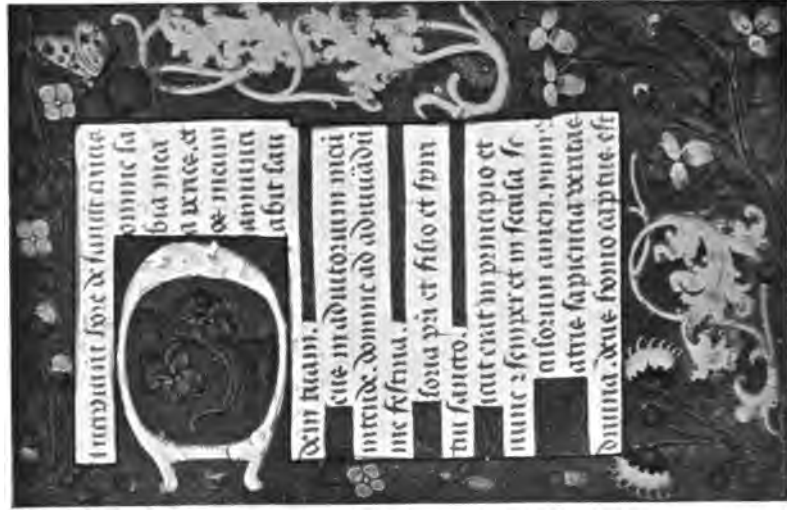 Incipiūt hore de sancta cruce
omine la
bia mea
aperies. et
os meum
annunci
abit lau
dem tuam.
eus in adiutorium meū
intende. domine ad adiuuādū
me festina.
loria pri et filio et spiri
tui sancto.
icut erat in principio et
nunc ⁊ semper et in secula se
culorum amen.
atris sapiencia veritas
diuina. deus homo captus est